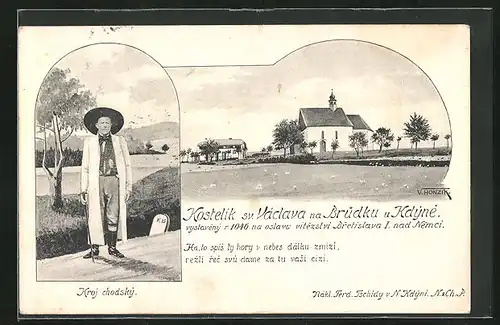 V. HONZÍK
Kostelík sv. Václava na Brůdku u Kdýně.
vystavěný r. 1046 na oslavu vítězství Břetislava I. nad Němci.
Ha, to spíš ty hory v nebes dálku zmizí,
nežli řeč svů dame za tu vaši cizí.
Kroj chodský.
Nákl. Ferd. Tschidy v N. Kdýni.